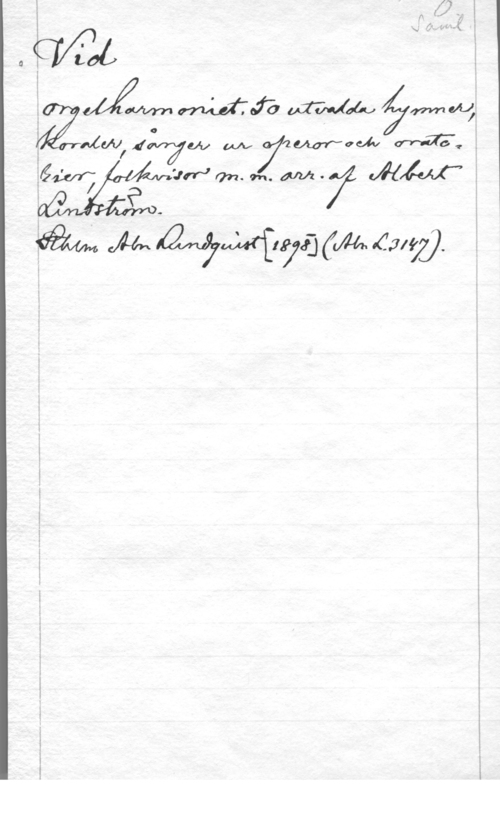 Saml.
Vid
orgelharmoniet. 50 utvalda hymner,
koraler, sånger ur operor och orato-
rier, folkvisor m. m. arr. af Albert
Lindström.
Sthlm Abr. Lundquist [1895] (Abr. L. 3147).